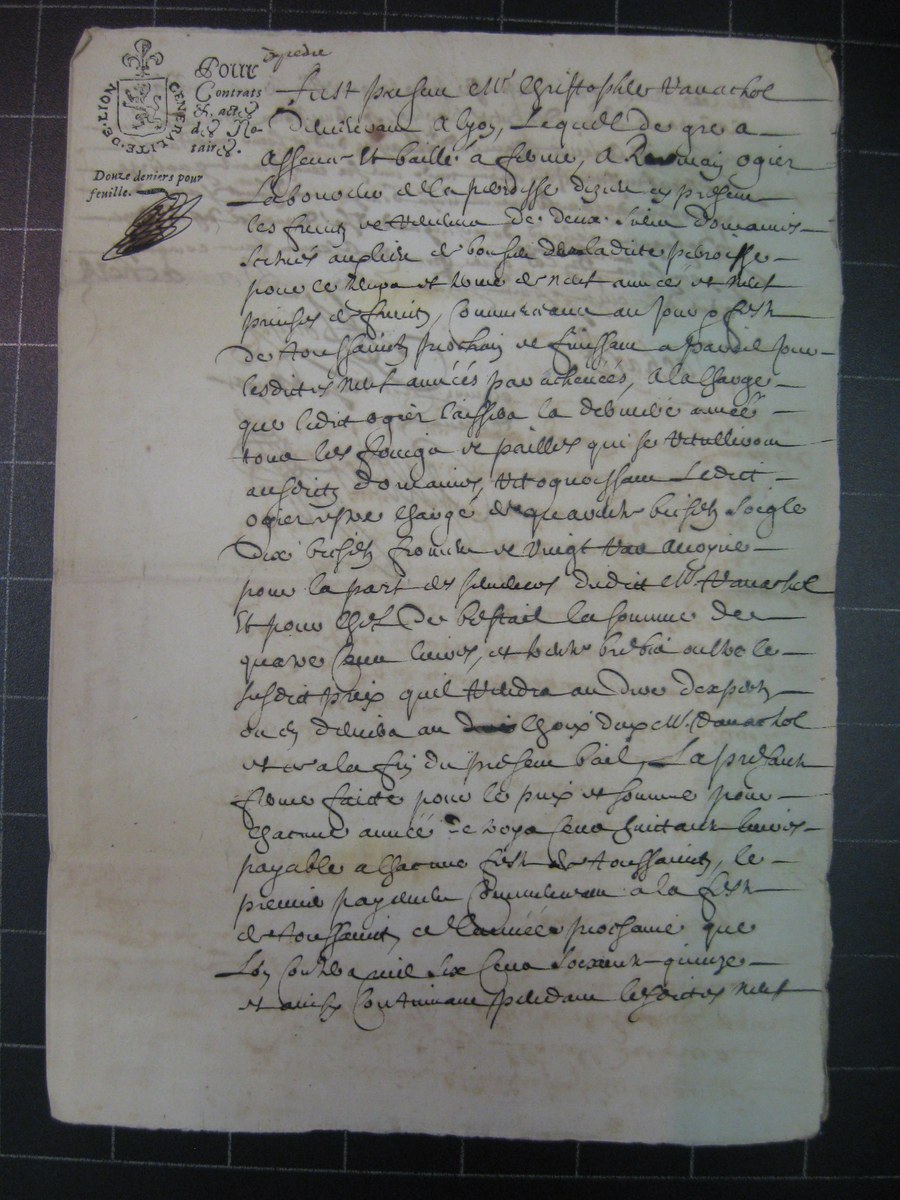 GENERALITE · DE · LION
Pour
Contrats
& actes
des No-
taires.
Douze deniers pour
feuille.
expedie
Fust present Mr Christophle Vanachol
demeurant a lyon, Lequel de gre a
Asseuré Et baillé a ferme, a ogier
Laboureur de la parroisse en present
les fruitz et de deux siens domaines
situés de ladite parroisse
pour le temps et terme de neuf année et neuf
prinses de fruitz, Commencant au jour & feste
de toussainctz prochain et finissant a pareil jour
lesdittes neuf années par achevées, A la charge
que ledit ogier laissera la derniere année
tous les et pailles qui se
ausditz domaines, Ledict
ogier chargé de quarante bichetz soigle
Dix bichetz froment et Vingt avoyne
pour la part des semences dudict Mr Vanachol
Et pour de bestail la somme de
quatre Cens livres, et brebis oultre le
susdict prix quil au dire dexpertz
ou en au choix dux Mr Vanachol
et ce a la fin du present bail, La presante
ferme faicte pour le prix et somme pour
chacune année de troys Cens huictante livres
payable a chacune feste de toussainctz, le
premier payement Commencant a la feste
de toussainctz de Lannée prochaine que
Lon Contera mil six Cens soixante quinze
et ainsy Continuant pendant lesdictes neuf